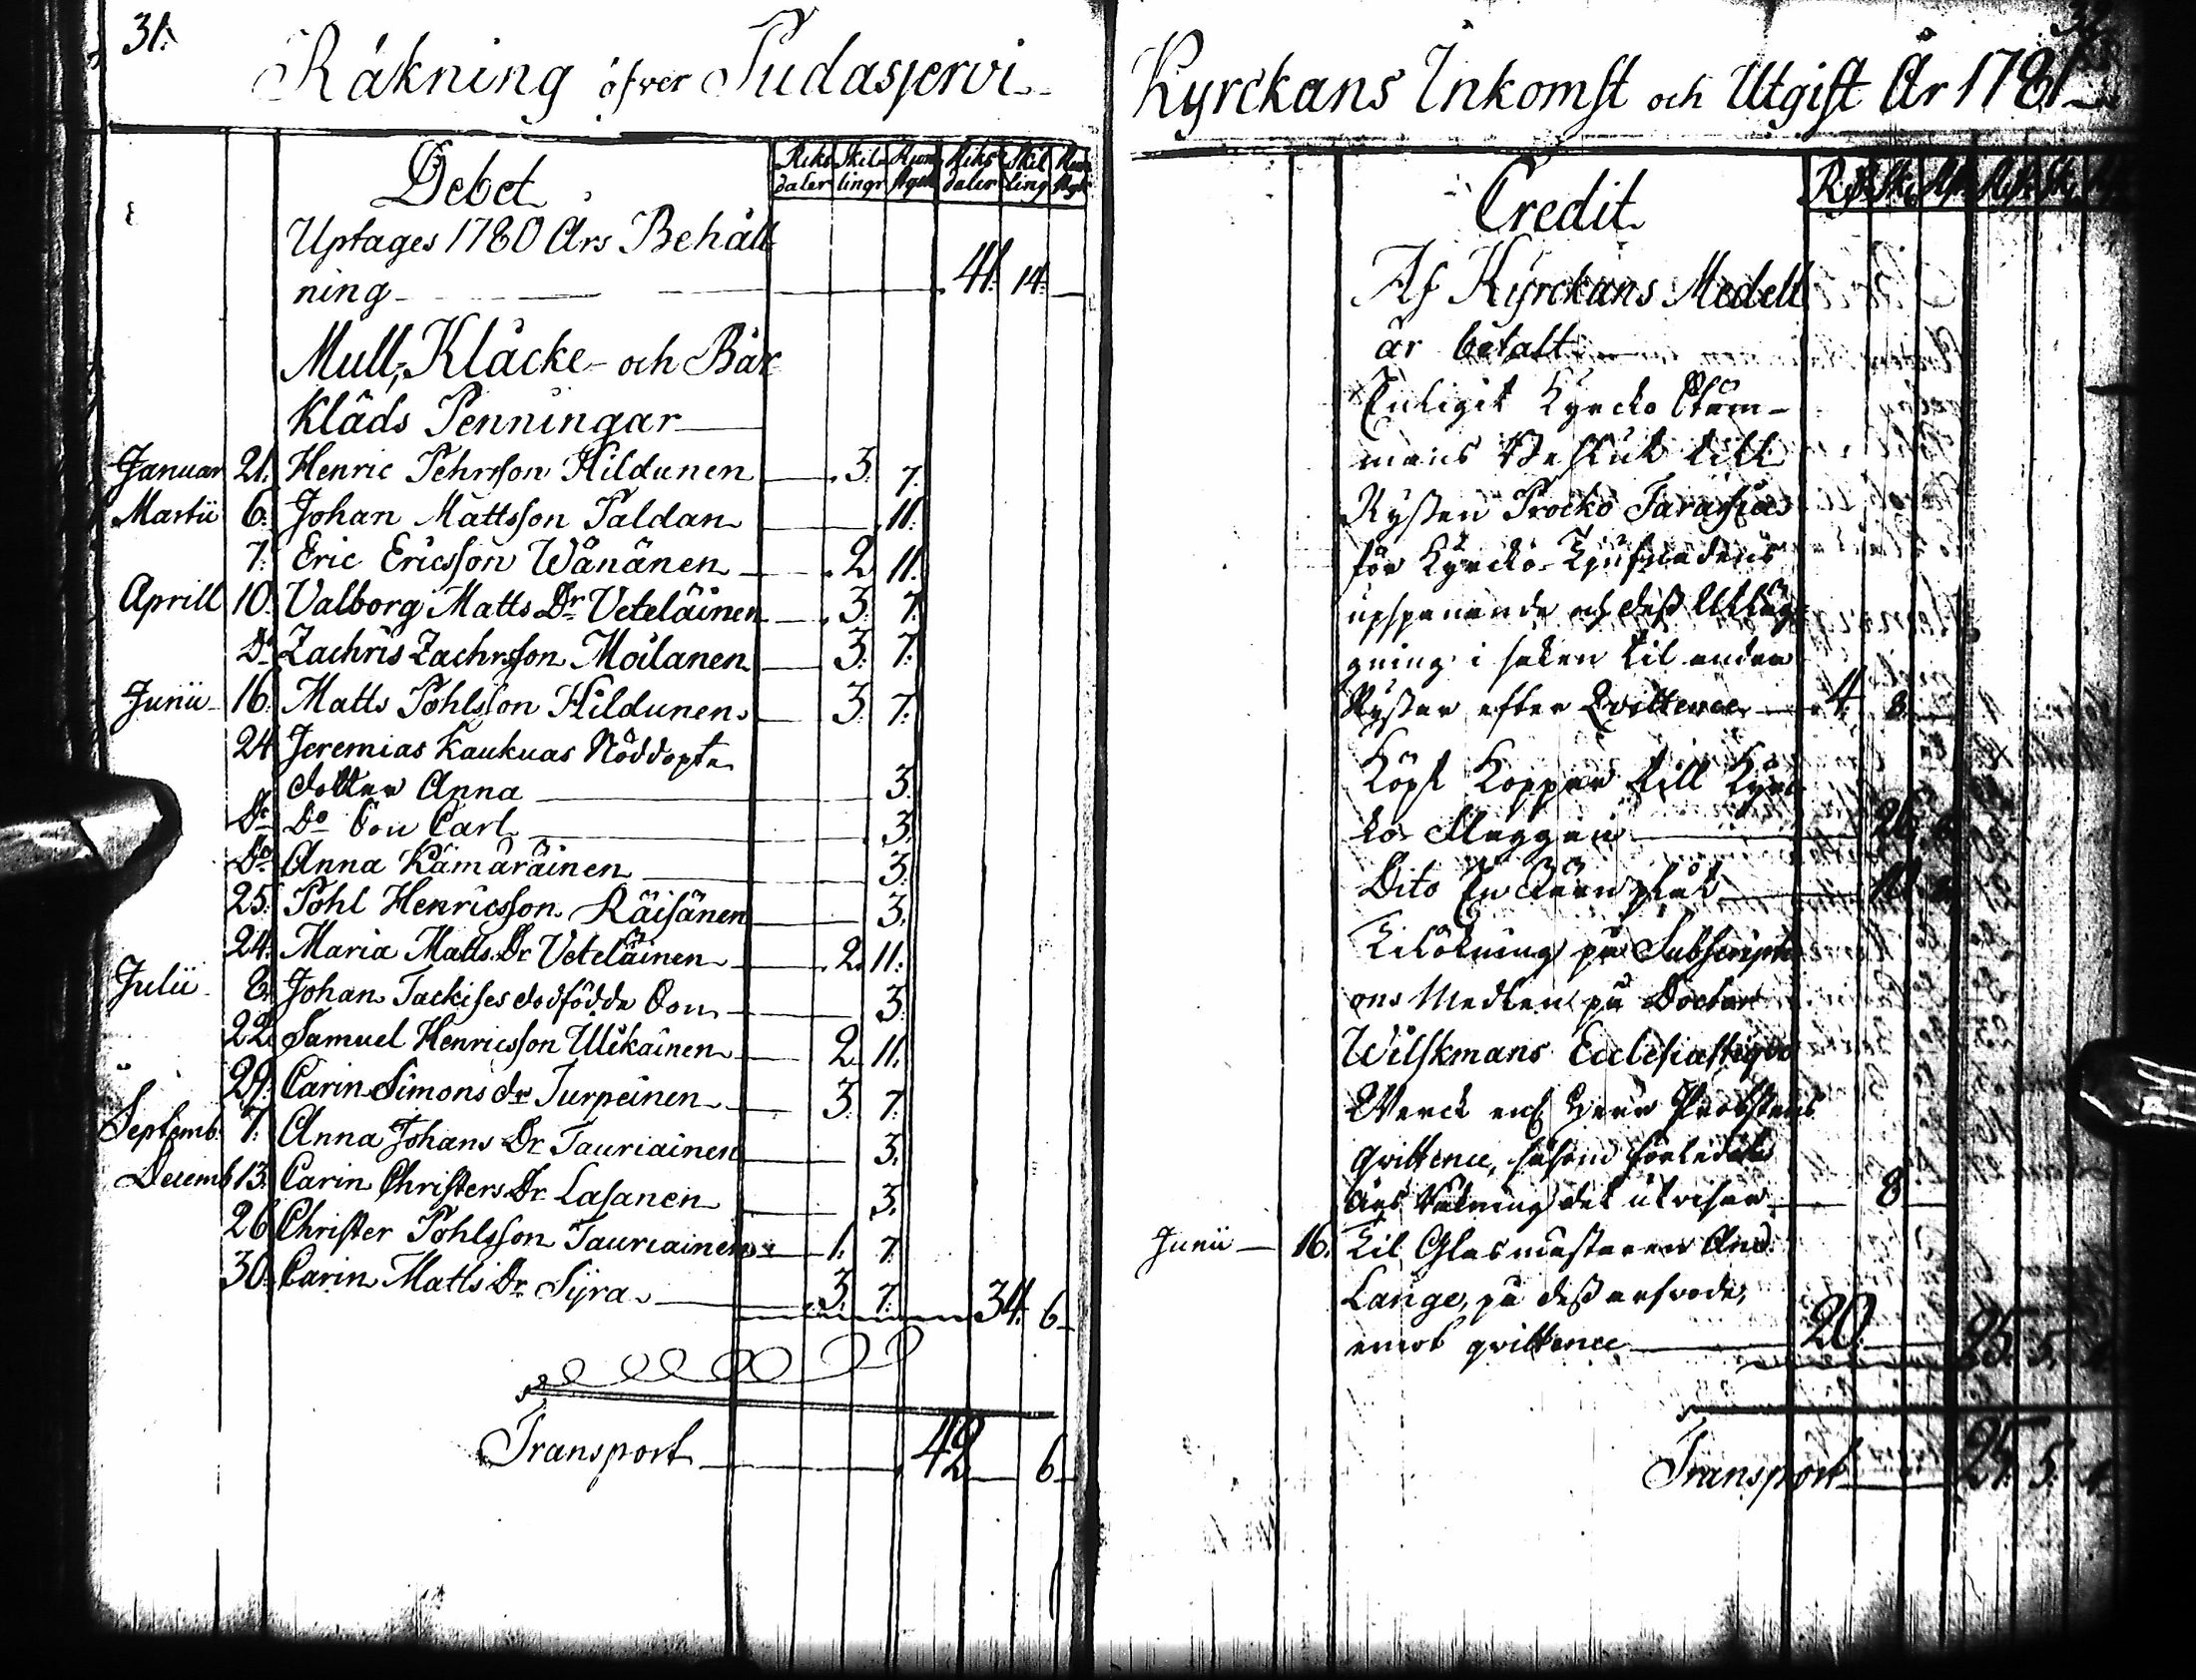 31.
Räkning öfver Pudasjervi
Debet
Riks daler Skil lingr Run styck Riks daler Skil ling Run styk
Uptages 1780 Års Behåll
ning 41. 14.
Mull, Kläcke- och Bår
Kläds Penningar
Januar 21. Henric Pehrsson Hildunen 3. 7.
Martii 6. Johan Mattsson Paldan 11.
7. Eric Ericsson Wänänen 2 11.
Aprill 10. Valborg Matts Dr Veteläinen 3. 7.
Do Zachris Zachrsson Moilanen 3. 7.
Junii 16. Matts Pohlsson Hildunen 3. 7.
24 Jeremias Kaukuas Nöddopte
dotter Anna 3.
Do Do Son Carl 3.
Do Anna Kämäräinen 3.
25. Pohl Henricsson Räisänen 3.
24. Maria Matts Dr Veteläinen 2. 11.
Julii 8. Johan Tackises dödfödde Son 3.
22. Samuel Henricsson Ulikainen 2. 11.
29. Carin Simons dr Turpeinen 3. 7.
Septemb. 7. Anna Johans Dr Tauriainen 3.
Decemb 13. Carin Christers Dr Lasanen 3.
26 Christer Pohlsson Tauriainen 1. 7.
30. Carin Matts Dr Syra 3. 7. 34. 6
Transport 42 6
Kyrckans Inkomst och Utgift År 1781
Credit
Af Kyrckans Medell
är betalt
Enligit Kyrcko Stäm-
mans Beslut till
Ryssen Procko
för Kyrcko-Tjufnadens
upspanande och dess
gning i saken til andra
Ryssar efter Qvittence 4. 8.
Köpt Koppar till Kyrc
ko Muggen
Dito En
Tilökning på Subscripti
ons Medlen på Doctor
Wilskmans Ecclesiastique
Werck enl Herr Probstens
qvittence, såsom förledit
Års Räkning det utvisar 8
Junii 16. Til Glasmästaren And.
Lange, på dess arfvode,
emot qvittence 20. 25. 5.
Transport 25. 5.